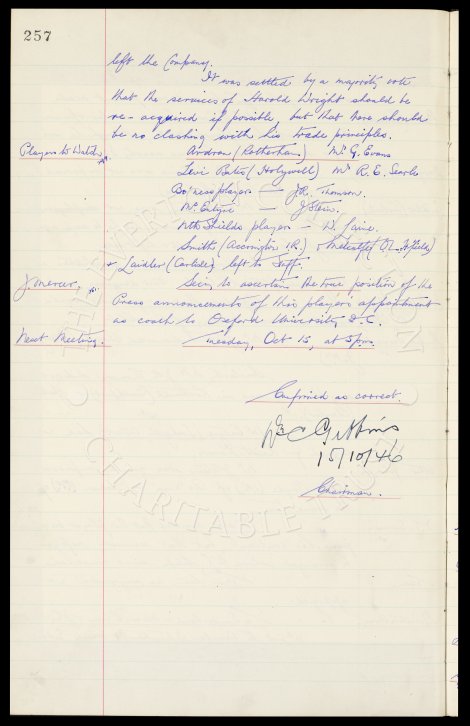 257
left the Company.
It was settled by a majority vote
that the services of Harold Wright should be
re-acquired if possible, but that there should
be no clashing with his trade principles.
Players to Watch.
Ardron (Rotherham) Mr. G. Evans
Levi Bates (Holywell) Mr R. E. Searle
Bo'ness players — J.R. Thomson.
McEntyre — J Stein.
Nth Shields players — D. Laine.
Smith (Accrington R.) & Metcalfe (O. )
& Laidler (Carlisle) left to Staff.
J. Mercer.
Secy to ascertain the true position of the
Press announcements of this players appointment
as coach to Oxford University F.C.
Next Meeting.
Tuesday, Oct 15, at 5pm.
Confirmed as correct.
W C Gibbins
15/10/46
Chairman.
THE EVERTON COLLECTION
CHARITABLE TRUST